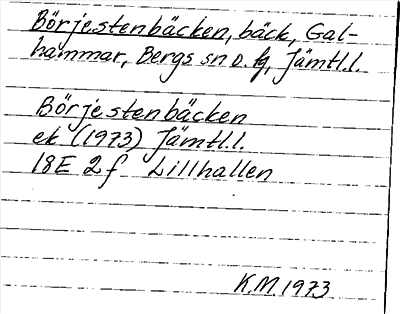 Börjestenbäcken, bäck, Gal-
hammar, Bergs sn o. kg, Jämtl.l.
Börjestenbäcken
ek (1973) Jämtl.l.
18E 2f Lillhallen
K.M. 1973